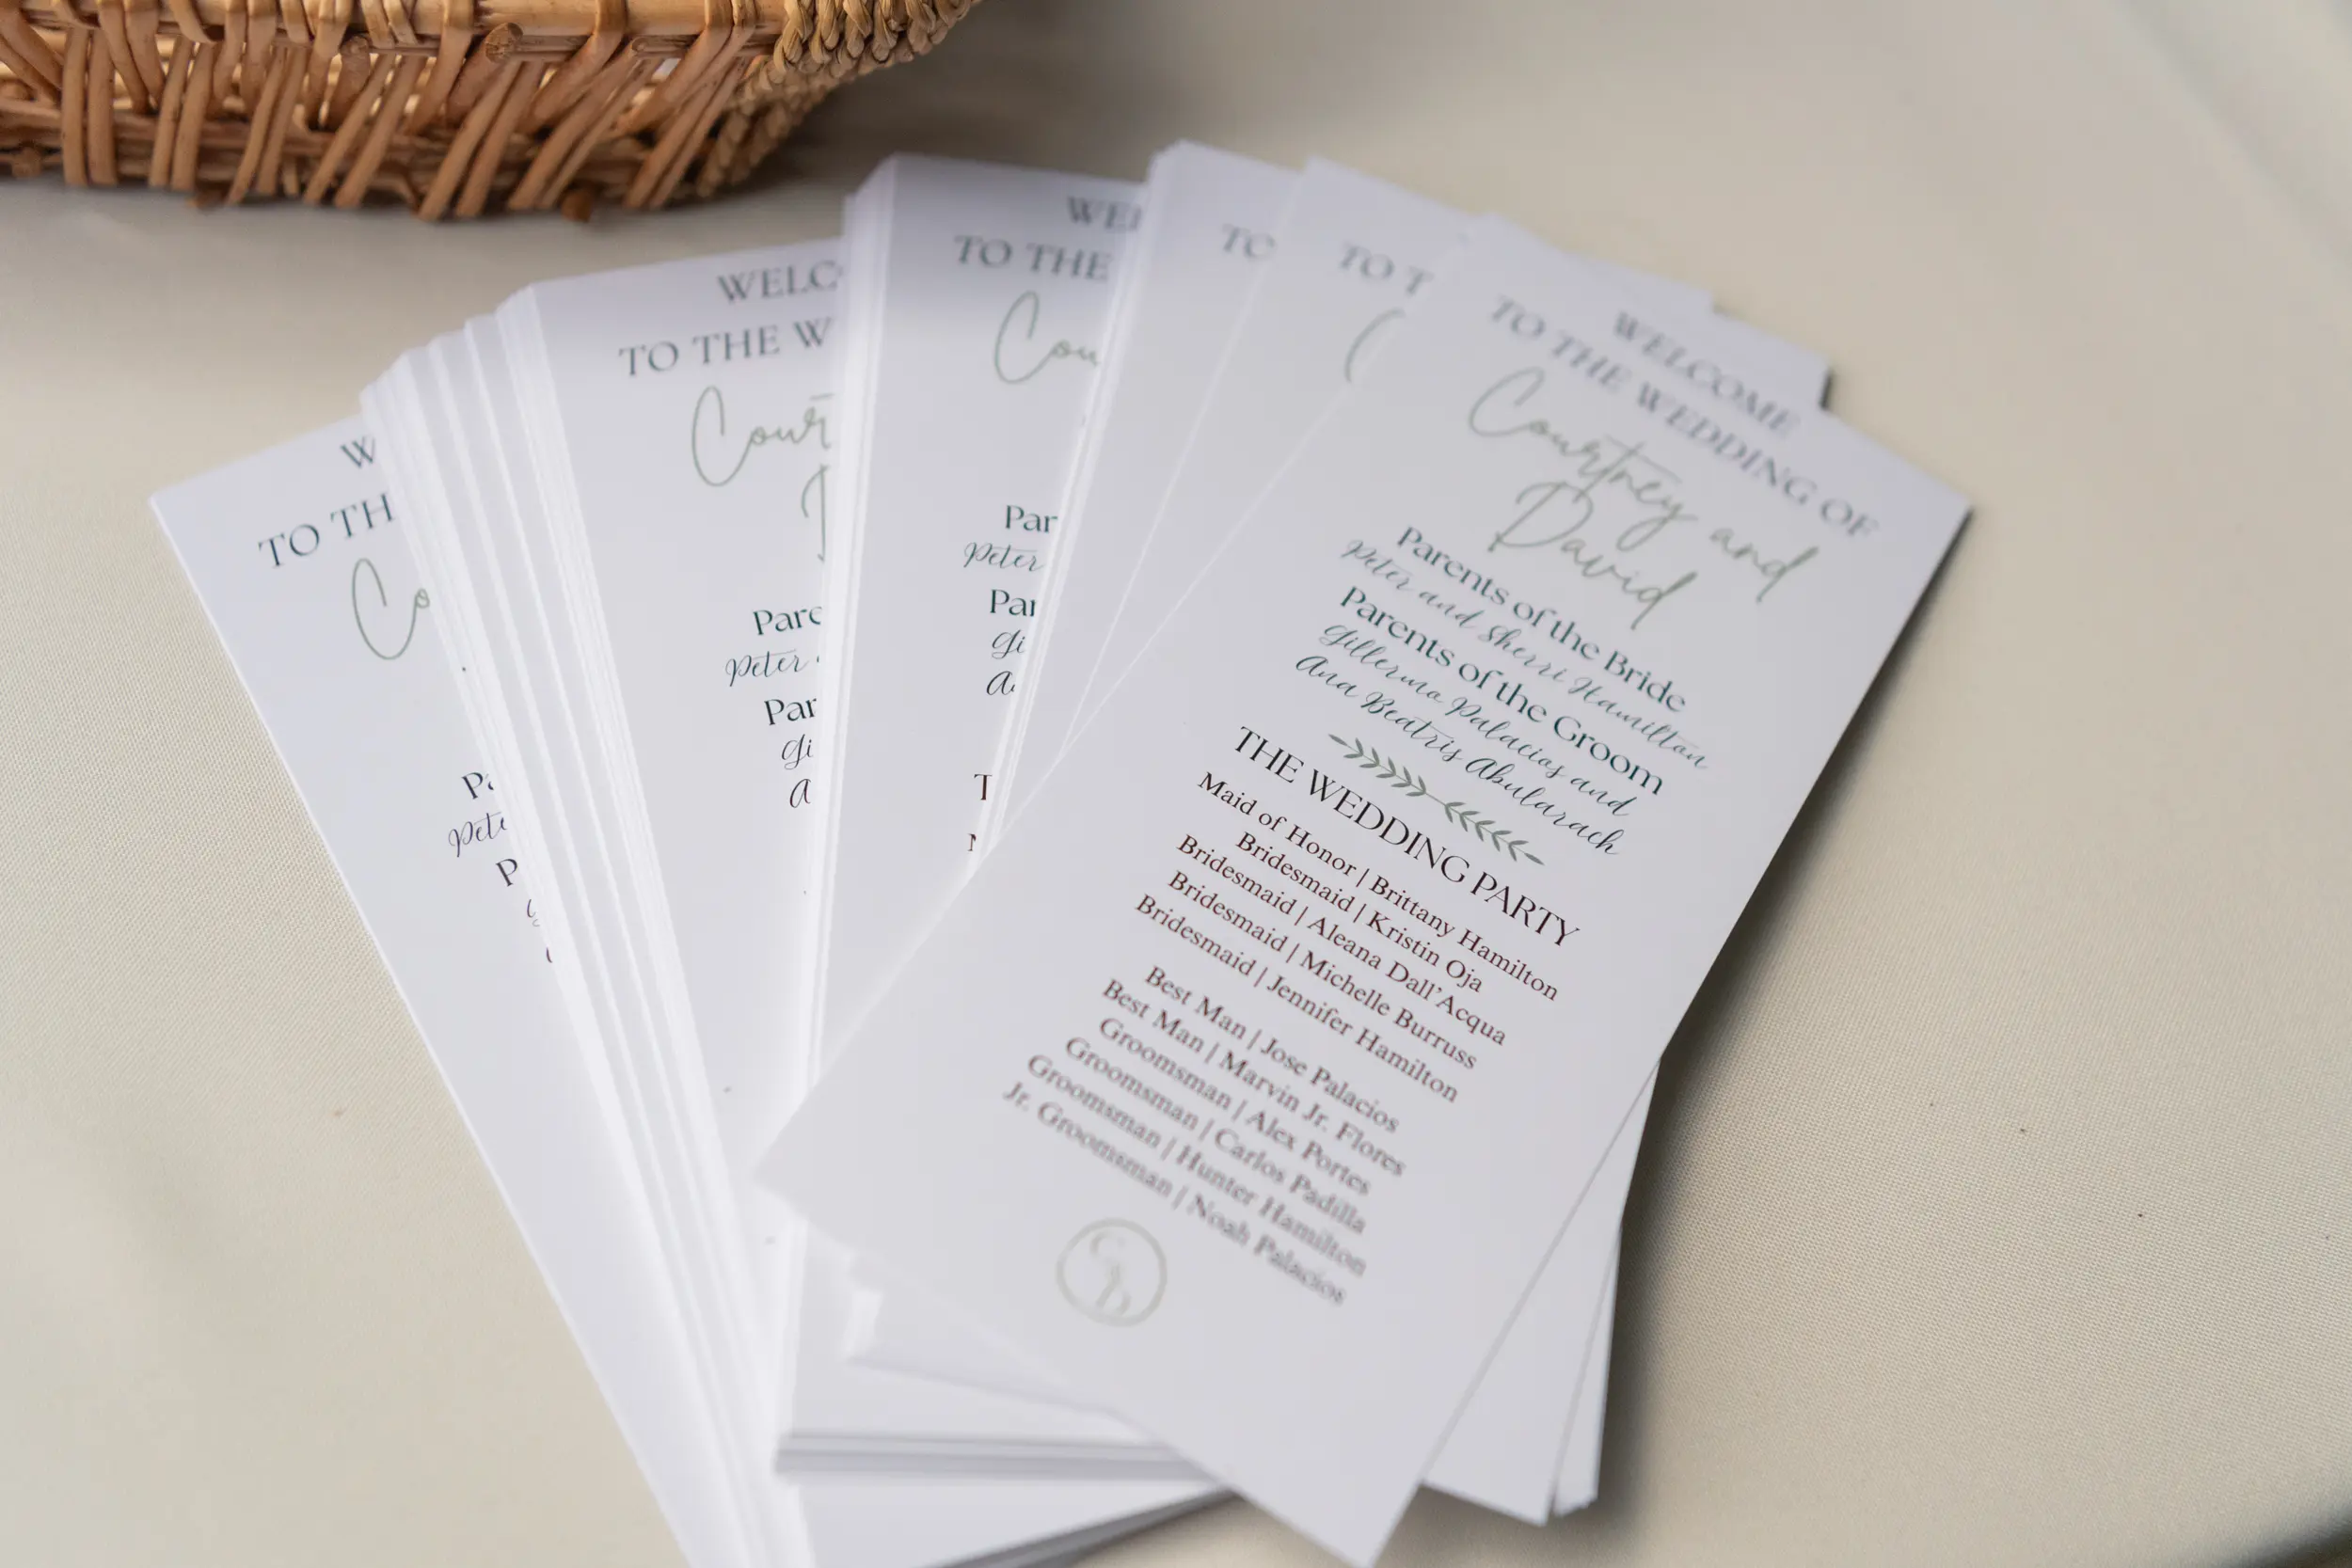 WELCOME
TO THE WEDDING OF
Courtney and
David
Parents of the Bride
Peter and Sherri Hamilton
Parents of the Groom
Gillermo Palacios and
Ana Beatris Abularach
THE WEDDING PARTY
Maid of Honor | Brittany Hamilton
Bridesmaid | Kristin Oja
Bridesmaid | Aleana Dall'Acqua
Bridesmaid | Michelle Burruss
Bridesmaid | Jennifer Hamilton
Best Man | Jose Palacios
Best Man | Marvin Jr. Flores
Groomsman | Alex Portes
Groomsman | Carlos Padilla
Groomsman | Hunter Hamilton
Jr. Groomsman | Noah Palacios
C
D
TO T
C
TO
WEL
TO THE
Cou
Par
Peter
Par
Gi
A
T
WELC
TO THE W
Court
D
Pare
Peter
Par
Gi
A
W
TO TH
Co
Pa
Pete
P